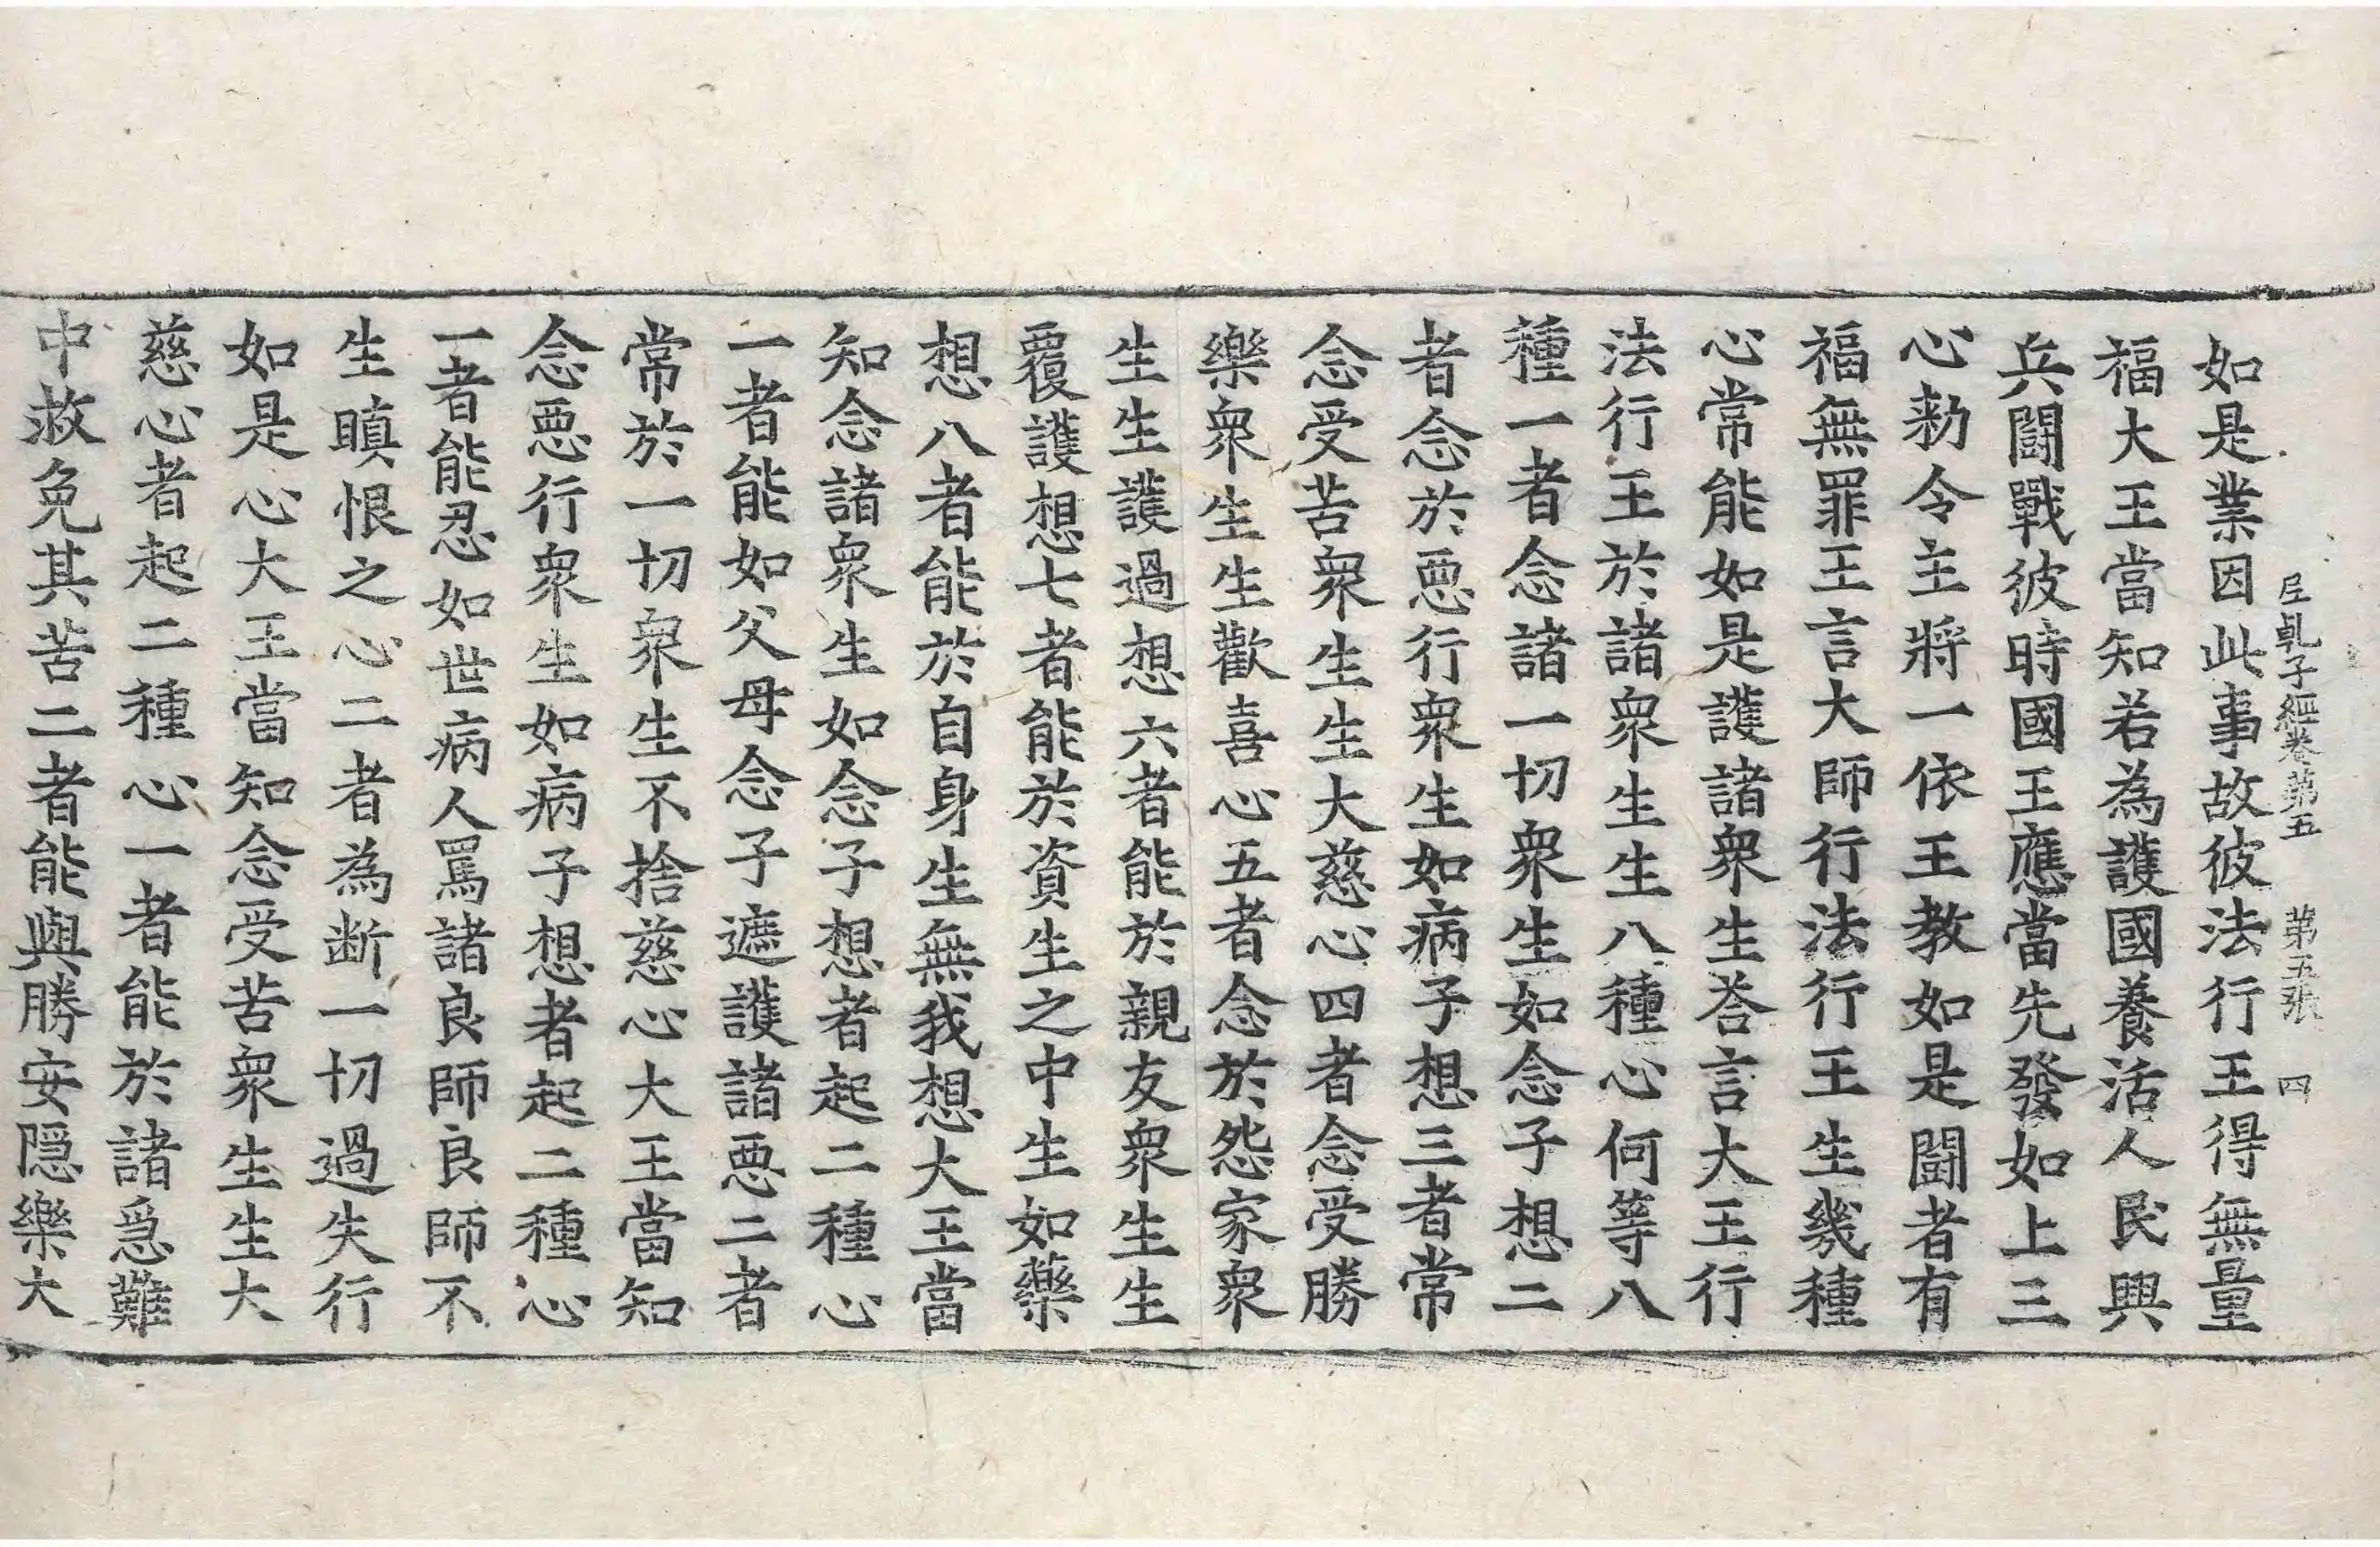 尼乹子經卷第五 第五張 四
如是業因此事故彼法行王得無量
福大王當知若為護國養活人民興
兵鬪戰彼時國王應當先發如上三
心勑令主將一依王教如是鬪者有
福無罪王言大師行法行王生幾種
心常能如是護諸衆生荅言大王行
法行王於諸衆生生八種心何等八
種一者念諸一切衆生如念子想二
者念於惡行衆生如病子想三者常
念受苦衆生生大慈心四者念受勝
樂衆生生歡喜心五者念於怨家衆
生生護過想六者能於親友衆生生
覆護想七者能於資生之中生如藥
想八者能於自身生無我想大王當
知念諸衆生如念子想者起二種心
一者能如父母念子遮護諸惡二者
常於一切衆生不捨慈心大王當知
念惡行衆生如病子想者起二種心
一者能忍如世病人罵諸良師良師不
生瞋恨之心二者為断一切過失行
如是心大王當知念受苦衆生生大
慈心者起二種心一者能於諸急難
中救免其苦二者能與勝安隱樂大